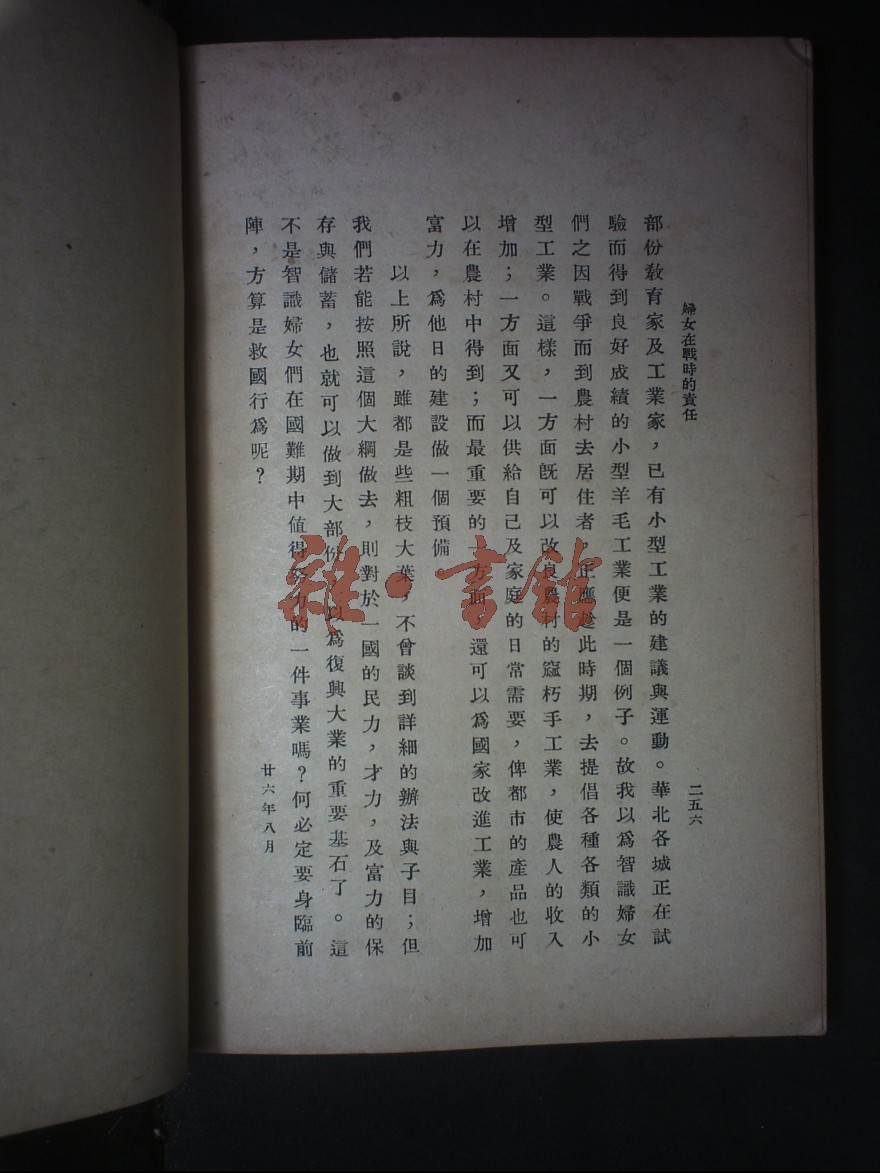 婦女在戰時的責任
二五六
部份敎育家及工業家，已有小型工業的建議與運動。華北各城正在試
驗而得到良好成績的小型羊毛工業便是一個例子。故我以爲智識婦女
們之因戰爭而到農村去居住者，正應趁此時期，去提倡各種各類的小
型工業。這樣，一方面旣可以改良農村的窳朽手工業，使農人的收入
增加；一方面又可以供給自己及家庭的日常需要，俾都市的產品也可
以在農村中得到；而最重要的一方面，還可以爲國家改進工業，增加
富力，爲他日的建設做一個預備
以上所說，雖都是些粗枝大葉，不曾談到詳細的辦法與子目；但
我們若能按照這個大綱做去，則對於一國的民力，才力，及富力的保
存與儲蓄，也就可以做到大部份，以爲復興大業的重要基石了。這
不是智識婦女們在國難期中値得努力的一件事業嗎？何必定要身臨前
陣，方算是救國行爲呢？
廿六年八月
雜·書館